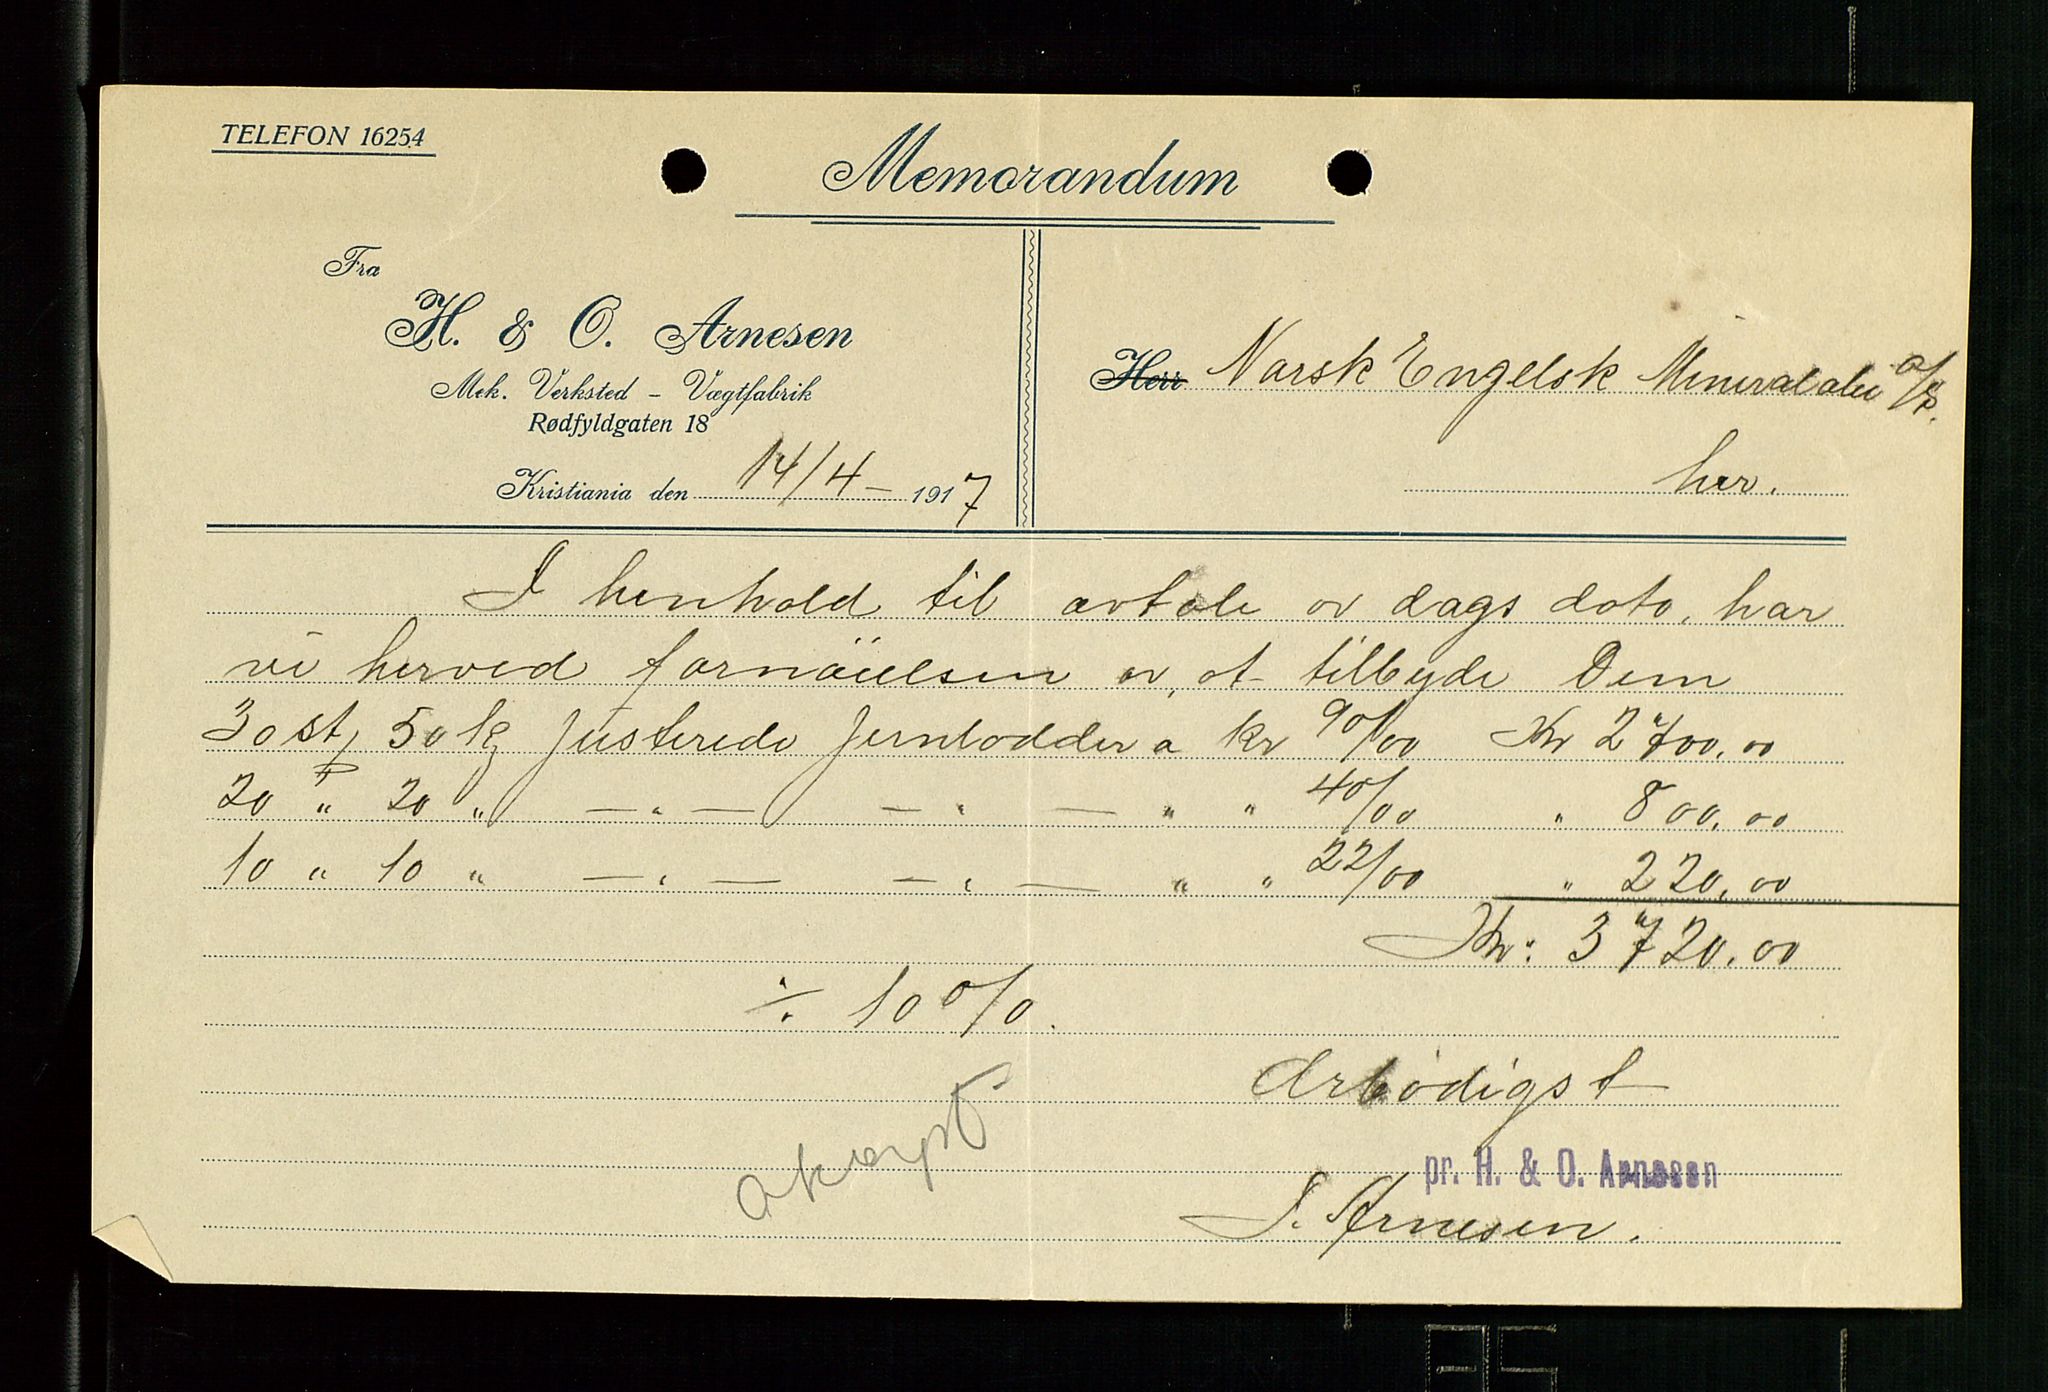 TELEFON 16254
Memorandum
Fra
H. & O. Arnesen
Mek. Verksted - Vægtfabrik
Rødfyldgaten 18
Kristiania den 14/4 - 1917
Herr Norsk Engelsk Mineralolie A/S.
her.
I henhold til avtale av dags dato, har
vi herved fornöielsen av, at tilbyde Dem
30 st, 50 kg Justerede Jernlodder a kr 90/00 Kr 2700,00
20 " 20 " — " — — " — " " 40/00 " 800,00
10 " 10 " — " — — " — " " 22/00 " 220,00
Kr: 3720,00
÷ 10 %.
Ærbödigst
pr. H. & O. Arnesen
S. Arnesen.
aksept